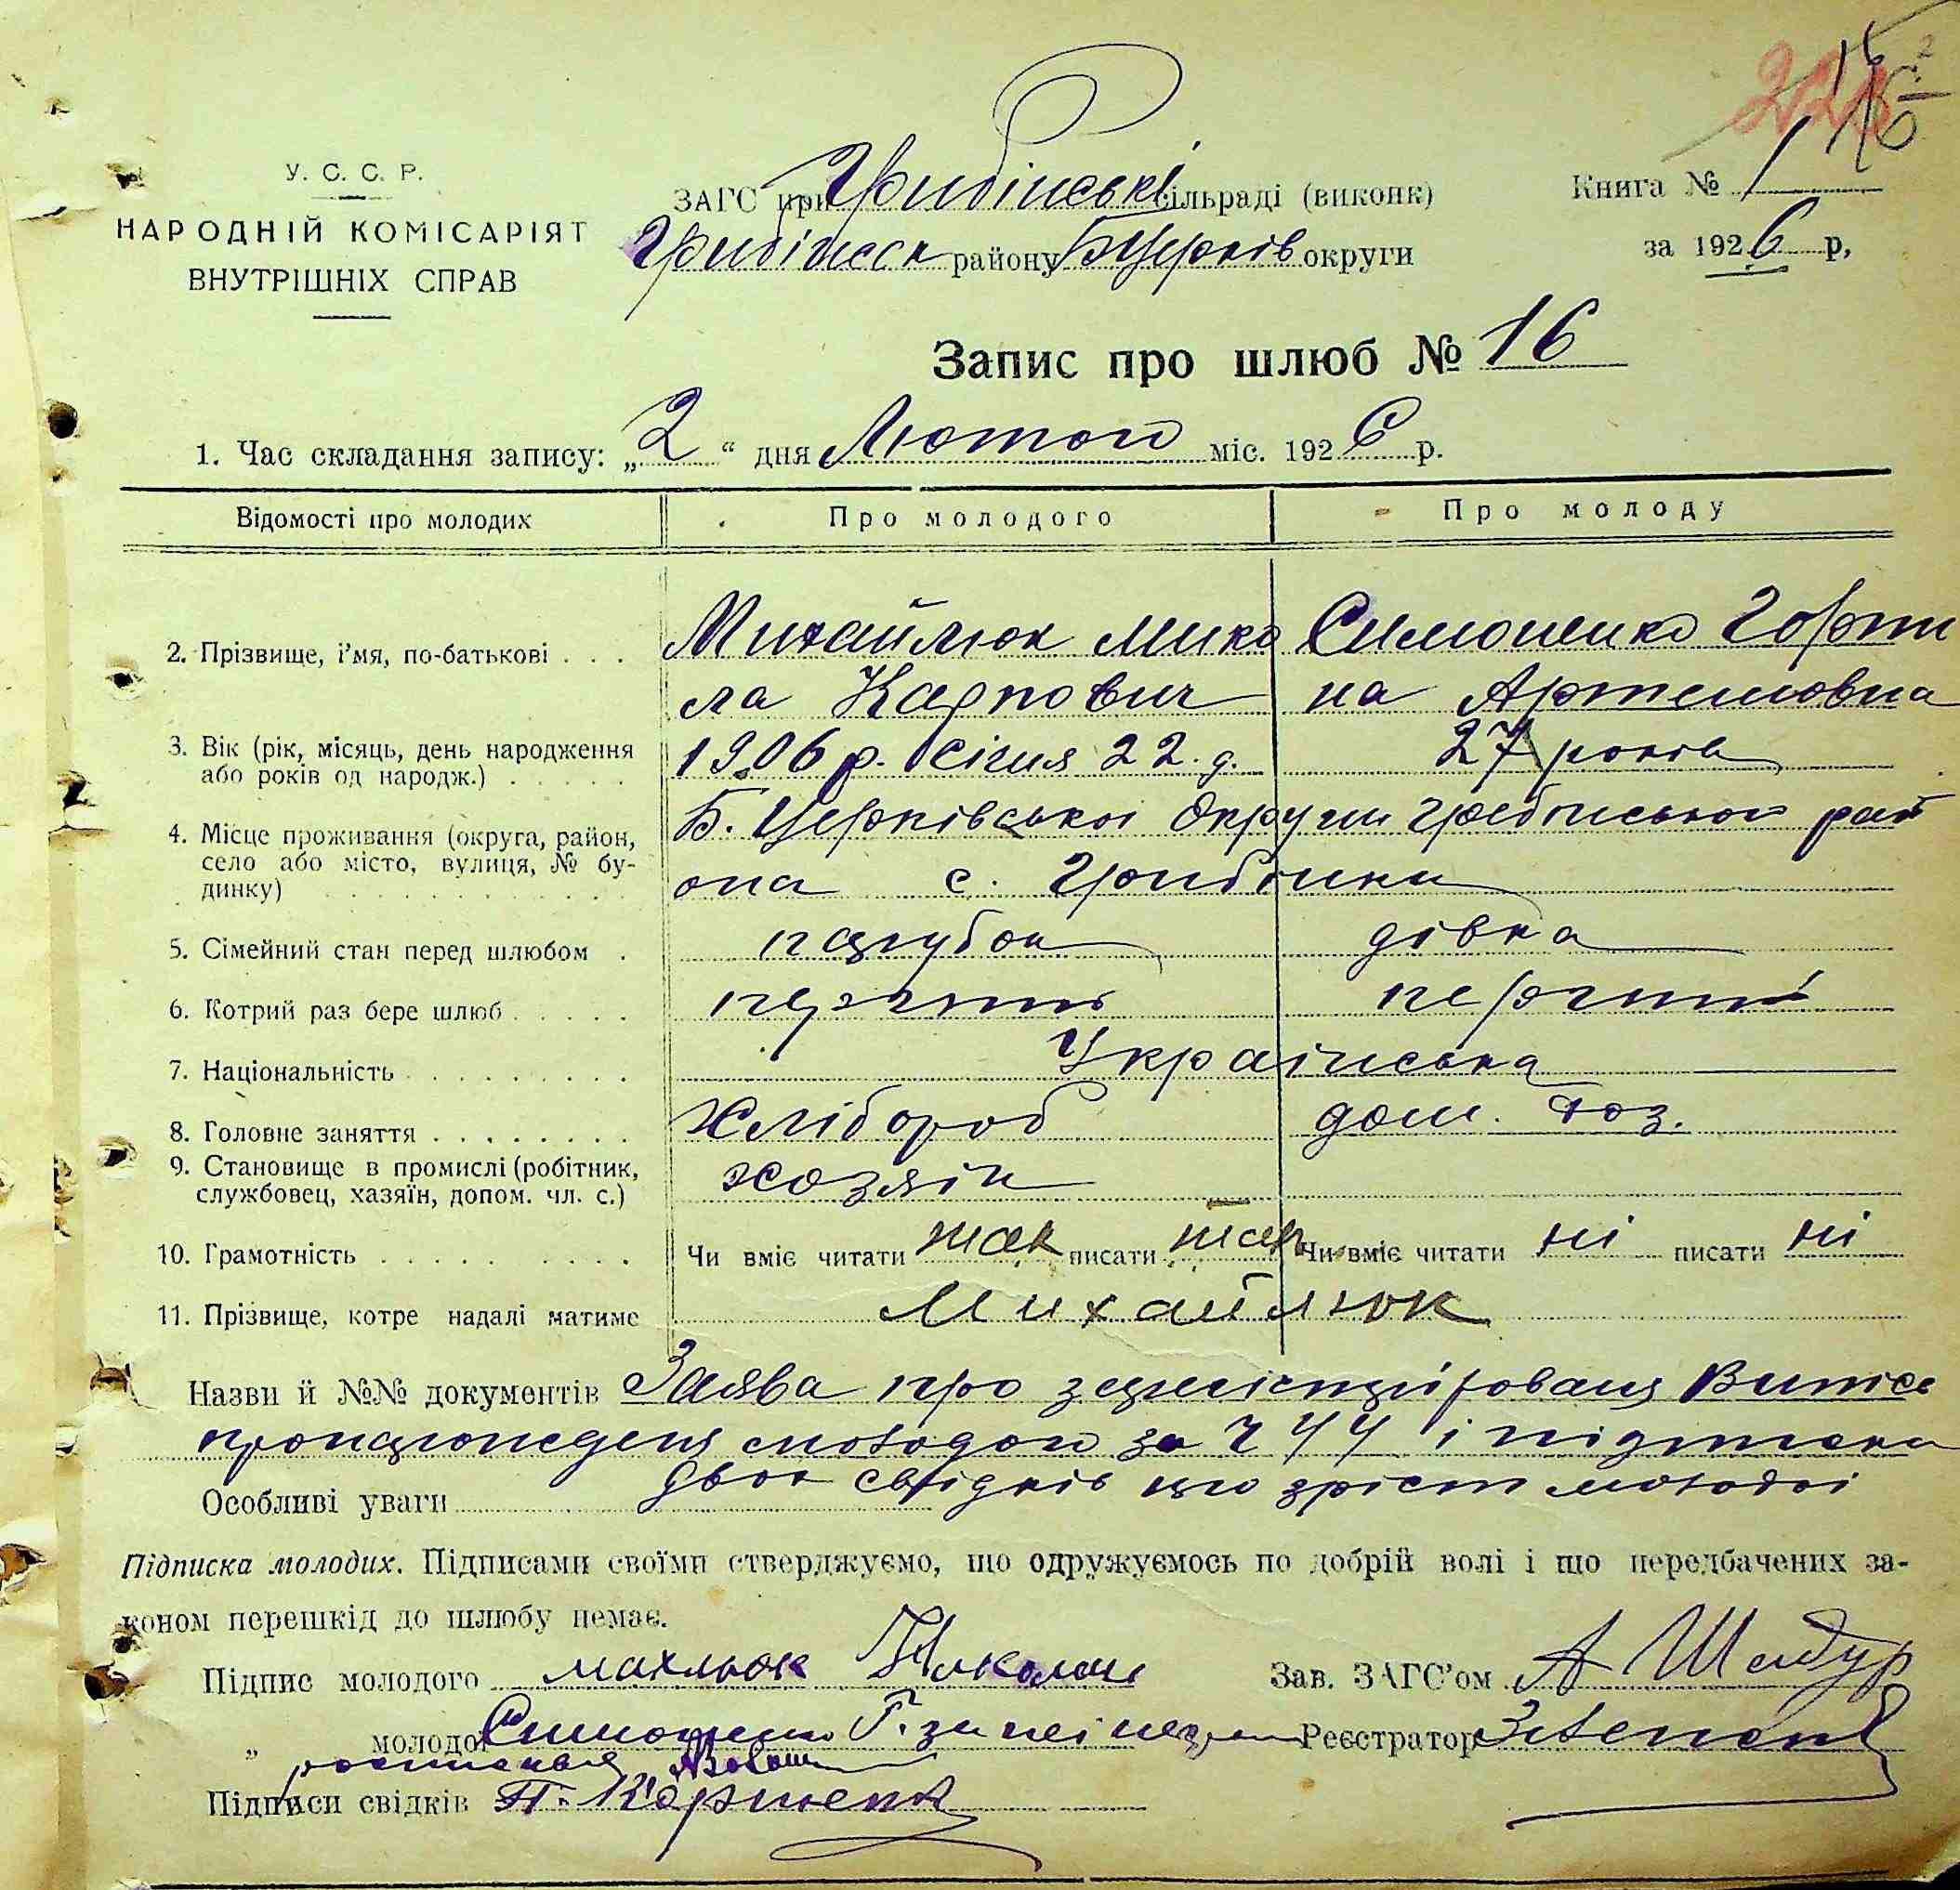 У. С. С. Р.
НАРОДНІЙ КОМІСАРІЯТ
ВНУТРІШНІХ СПРАВ
ЗАГС при Грибінські сільраді (виконк)
Грибінськ району БЦерків округи
Книга № 1
за 1926 р,
Запис про шлюб № 16
1. Час складання запису: „2“ дня Лютого міс. 1926 р.
Відомості про молодих Про молодого Про молоду
2. Прізвище, і'мя, по-батькові . . . Михайлюк Мико Симоненко Горпи
ла Карпович на Артемовна
3. Вік (рік, місяць, день народження 1906 р. Січня 22. д. 27 років
або років од народж.)
4. Місце проживання (округа, район, Б. Церківськоі Округи Гребінського рай
село або місто, вулиця, № бу- она с. Грибінки
динку)
5. Сімейний стан перед шлюбом . парубок дівка
6. Котрий раз бере шлюб . . . . . перший перший
7. Національність . . . . . . . . . Українська
8. Головне заняття . . . . . . . . Хлібороб дом. хоз.
9. Становище в промислі (робітник, хозяін
службовец, хазяїн, допом. чл. с.)
10. Грамотність . . . . . . . . . Чи вміє читати так писати так Чи вміє читати ні писати ні
11. Прізвище, котре надалі матиме Михайлюк
Назви й №№ документів Заява про Витяг
молодого за 744 і підписка
Особливі уваги двох свідків що зріст молодоі
Підписка молодих. Підписами своїми стверджуємо, що одружуємось по добрій волі і що передбачених за-
коном перешкід до шлюбу немає.
Підпис молодого махлюк Николай Зав. ЗАГС'ом А Шадур
„ молодої Симоненко Г. за неі неграм Реєстратор
росписався
Підписи свідків П. Корниенко